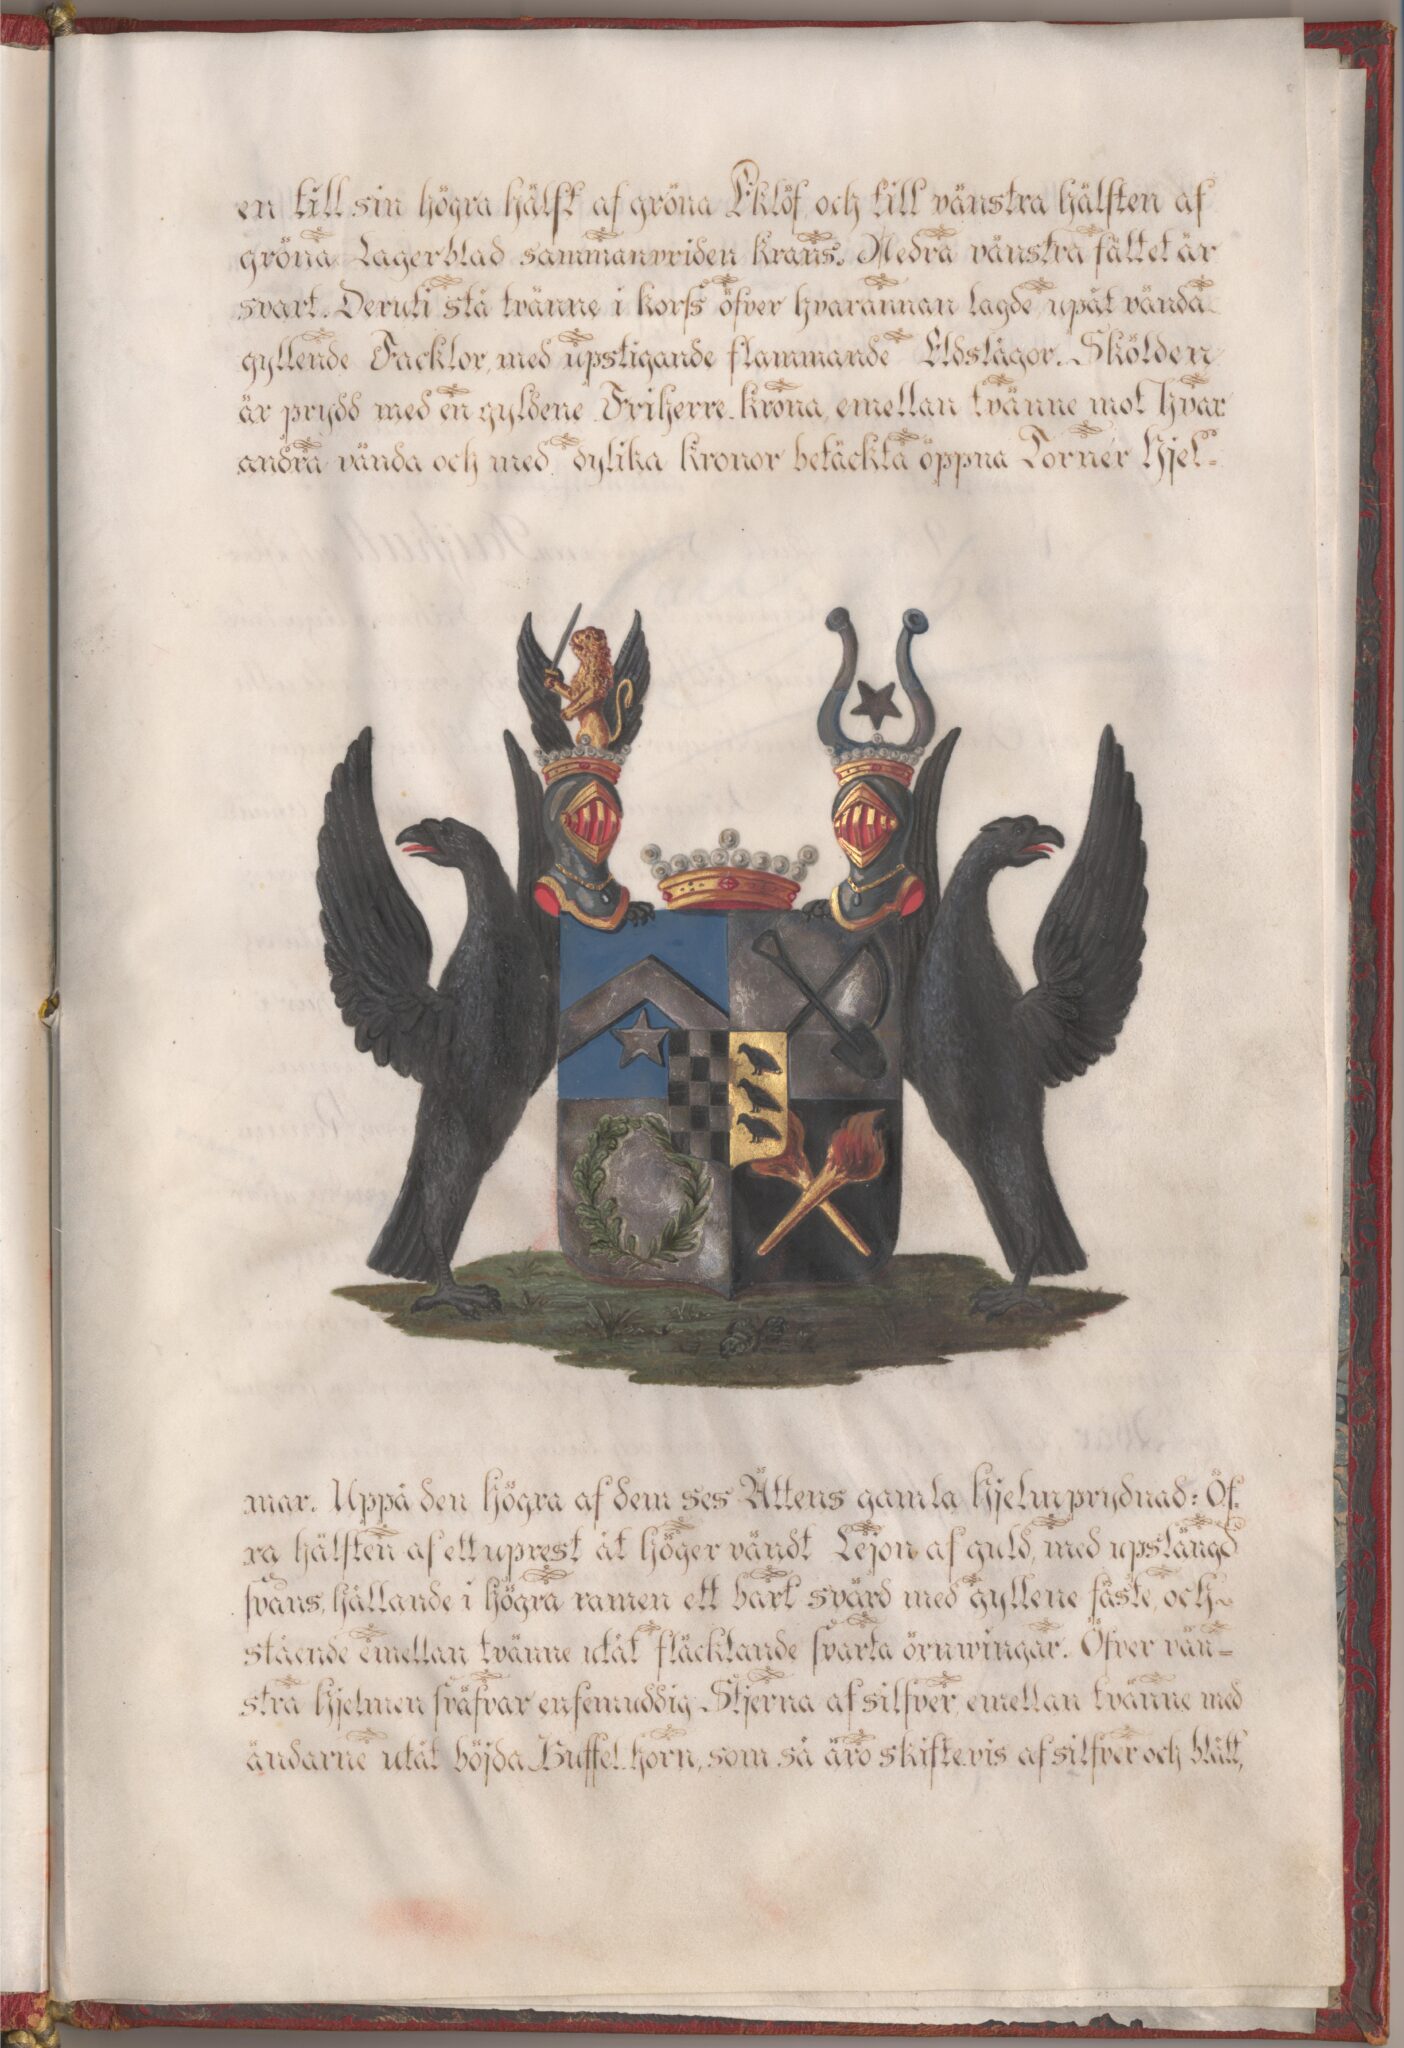 en till sin högra hälft af gröna Eklöf och till vänstra hälften af
gröna Lagerblad sammanvriden krans. Nedra vänstra fältet är
svart. Deruti stå tvänne i korss öfver hvarannan lagde, upåt vända
gyllende Facklor, med upstigande flammande Eldslågor. Skölden
är prydd med en gyldene Friherre-krona, emellan tvänne mot hvar
andra vända och med dylika kronor betäckta öppna Torner Hjel-
mar. Uppå den högra af dem ses Ättens gamla hjelmprydnad: Öf-
ra hälften af ett uprest åt höger vändt Lejon af guld, med upslängd
svans, hållande i högra ramen ett bart svärd med gyllene fäste, och
stående emellan tvänne utåt fläcktande svarta örnwingar. Öfver vän-
stra hjelmen sväfvar en semuddig Stjerna af silfver, emellan tvänne med
ändarne utåt böjda Buffel-horn, som så äro skiftevis af silfver och blått,